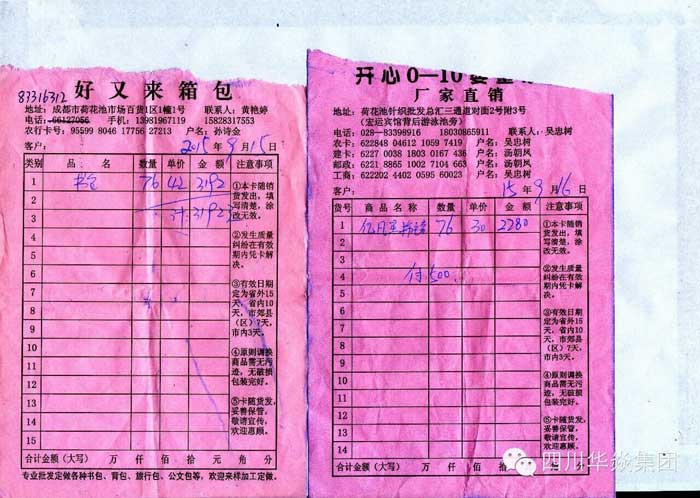 好又来箱包
83316312
地址：成都市荷花池市场百货1区1幢1号 联系人：黄艳婷
电话：66127056 手机：13981967119 15828317553
农行卡号：95599 8046 17756 27213 户名：孙诗金
客户： 2015年9月15日
类别 品名 数量 单价 金额 注意事项
1 书包 76 42 3192
2
3 计：3192
4
5
6
7
8
9
10
11
12
13
14
15
①本卡随销
货发出，填
写清楚，涂
改无效。
②发生质量
纠纷在有效
期内凭卡解
决。
③有效日期
定为省外15
天，省内10
天，市郊县
（区）7天，
市内3天。
④原则调换
商品需无污
迹，无破损
包装完好。
⑤卡随货发，
妥善保管，
敬请宣传，
欢迎惠顾。
合计金额（大写） 万 仟 佰 拾 元 角 分
专业批发定做各种书包、背包、旅行包、公文包等，欢迎来样加工定做。
开心0—10婴童
厂家直销
地址：荷花池针织批发总汇三通道对面2号附3号
（宏运宾馆背后游泳池旁）
电话：028—83398916 18030865911 联系人：吴忠树
农卡：622848 04612 1059 7419 户名：吴忠树
建卡：6227 0038 1803 0167 436 户名：汤朝凤
邮政：6221 8865 1002 7104 663 户名：汤朝凤
工商：622202 4402 0595 60023 户名：吴忠树
客户： 15年9月16日
货号 商品名称 数量 单价 金额 注意事项
1 76 30 2280
2
3
4 付500
5
6
7
8
9
10
11
12
13
14
①本卡随销
货发出，填
写清楚，涂
改无效。
②发生质量
纠纷在有效
期内凭卡解
决。
③有效日期
定为省外15
天，省内10
天，市郊县
（区）7天，
市内3天。
④原则调换
商品需无污
迹，无破损
包装完好。
⑤卡随货发，
妥善保管，
敬请宣传，
欢迎惠顾。
合计金额（大写） 万 仟 佰 拾
四川华焱集团